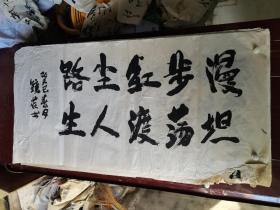 漫坦
步荡
红渡
尘人
路生